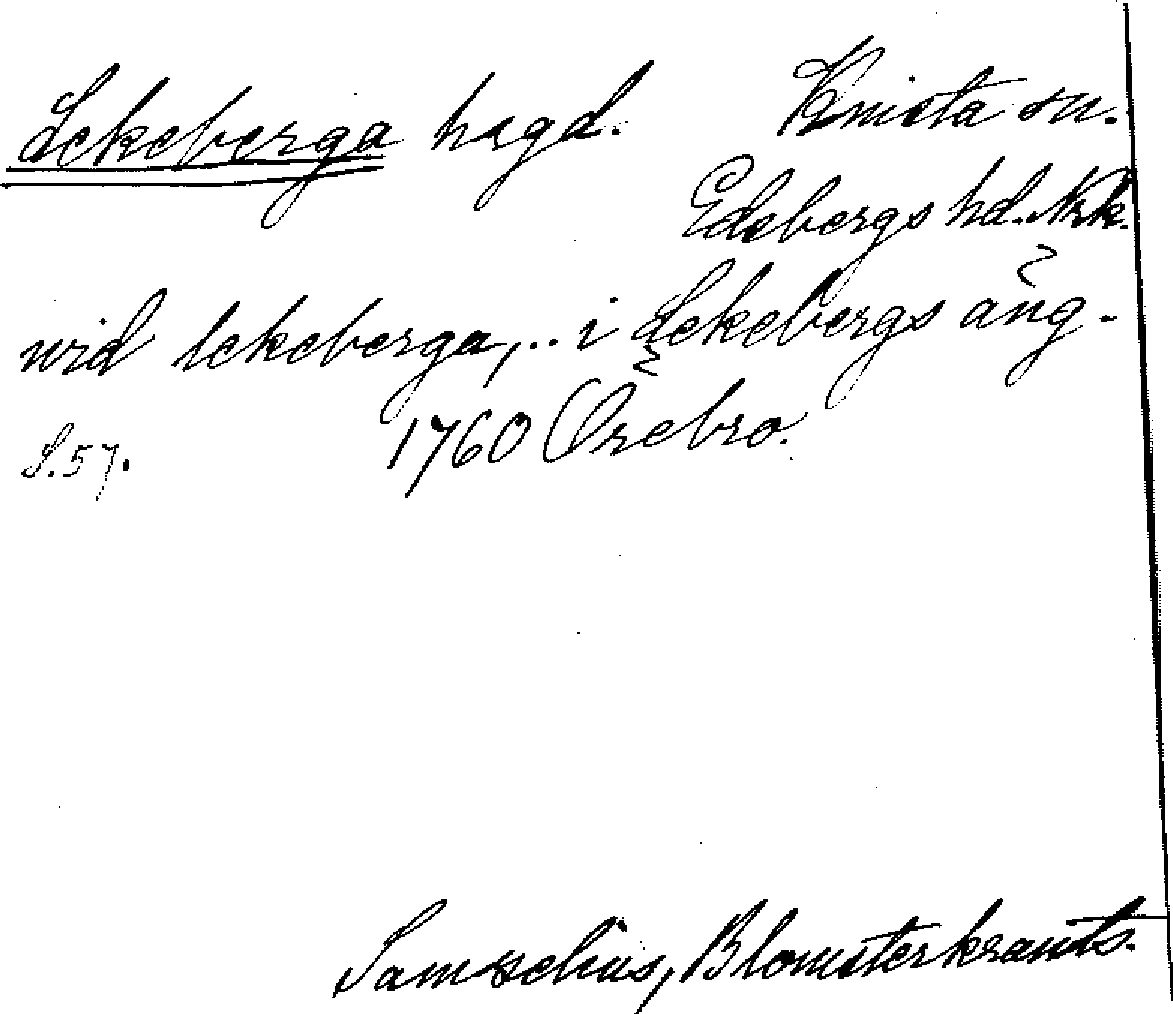 Lekeberga hrgd. Knista sn.
Edsbergs hd. Nrk.
wid lekeberga,.. i Lekebergs äng-
S. 57. 1760 Örebro.
Samzelius, Blomsterkrants.